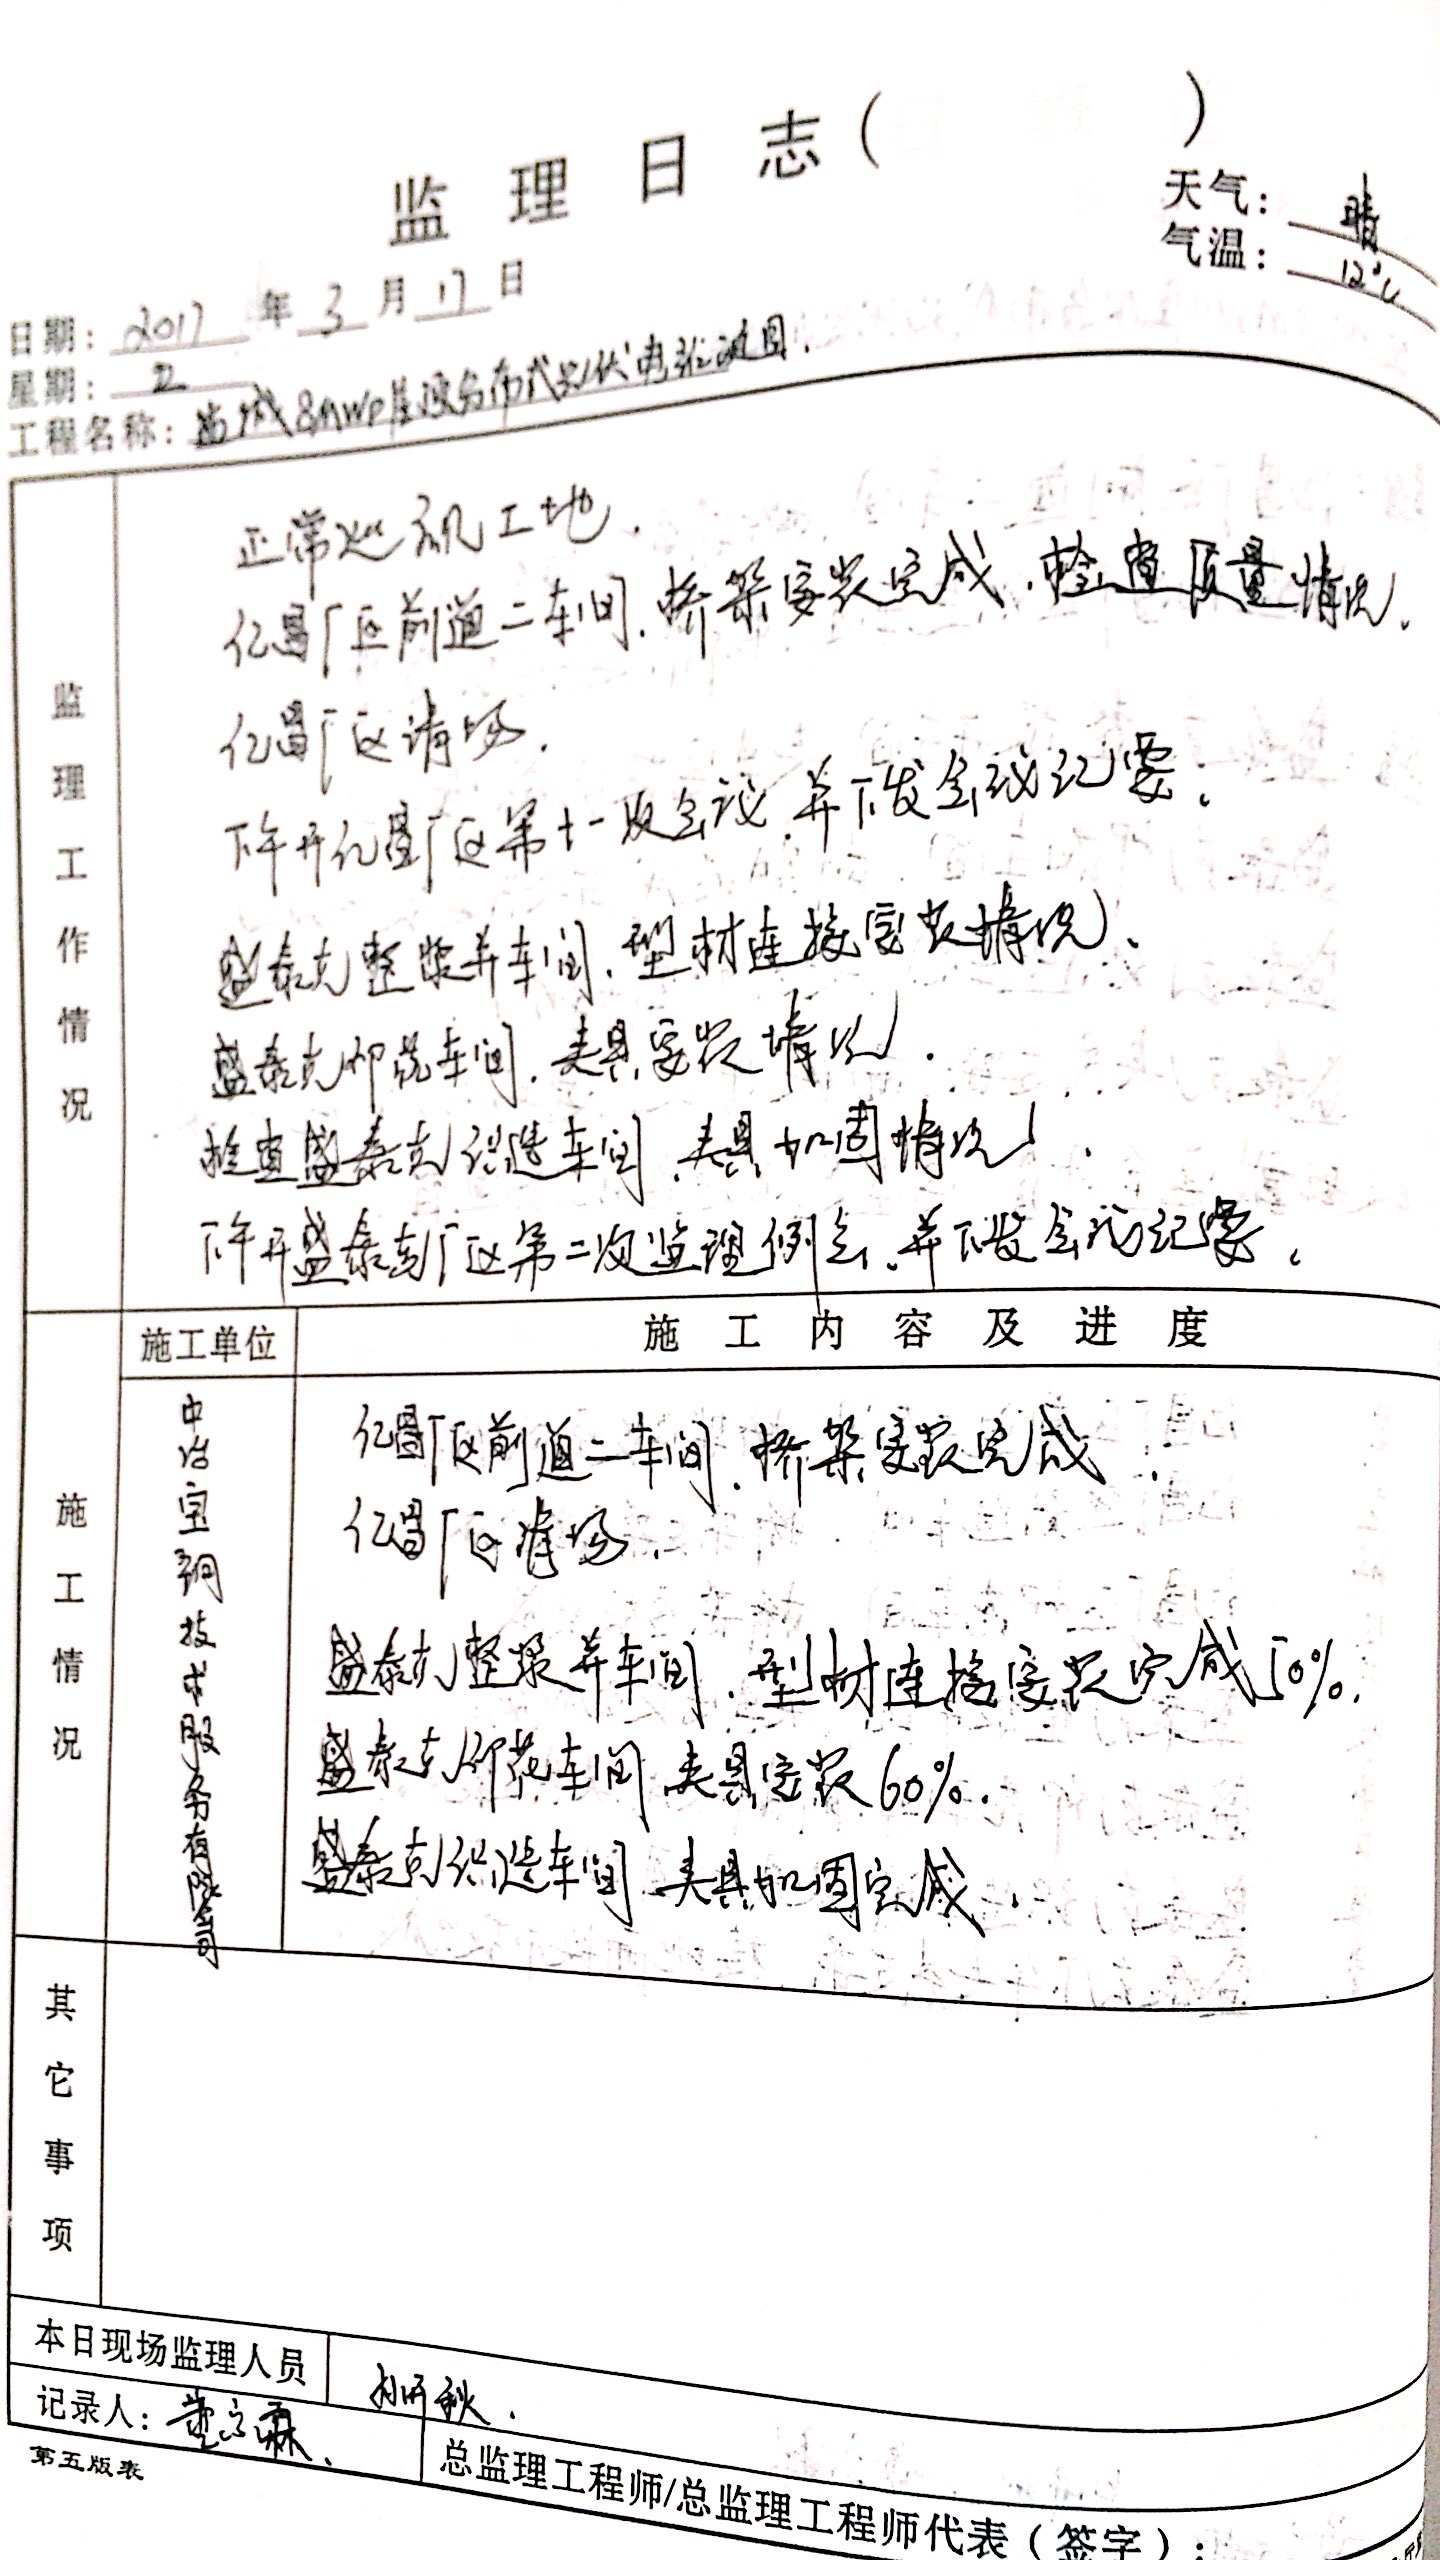 监理日志（ ）
天气：晴
气温：12℃
日期：2017年3月17日
星期：五
工程名称：8MWp屋顶分布式光伏电站项目.
监理工作情况
正常巡视工地.
亿昌厂区前道二车间.桥架安装完成.检查质量情况.
亿昌厂区清场.
下午开亿昌厂区第十一次会议.并下发会议纪要.
盛泰克整浆并车间.型材连接安装情况.
盛泰克印花车间.夹具安装情况.
检查盛泰克织造车间.夹具加固情况.
下午开盛泰克厂区第二次监理例会.并下发会议纪要.
施工情况
施工单位
施工内容及进度
中冶宝钢技术服务有限公司
亿昌厂区前道二车间.桥架安装完成.
亿昌厂区清场.
盛泰克整浆并车间.型材连接安装完成50%.
盛泰克印花车间夹具安装60%.
盛泰克织造车间夹具加固完成.
其它事项
本日现场监理人员
秋.
记录人：
总监理工程师/总监理工程师代表（签字）：
第五版表